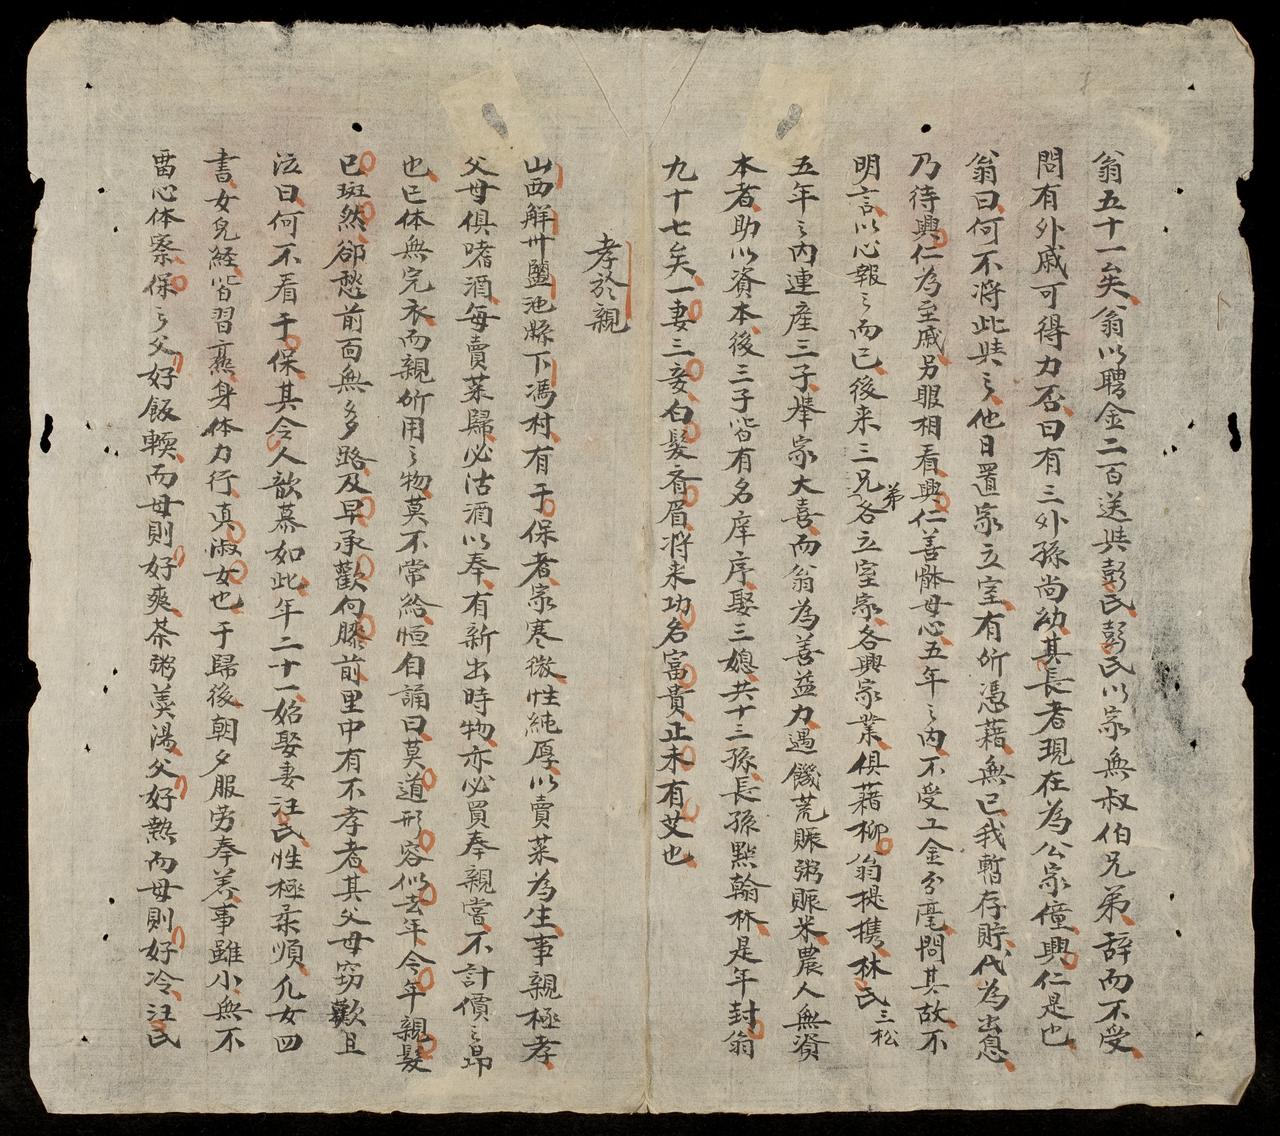 翁五十一矣翁以聘金二百送與彭氏彭氏以家無叔伯兄弟辞而不受
問有外戚可得力否曰有三外孫尚幼其長者現在為公家僮興仁是也
翁曰何不将此與之他日置家立室有所憑藉無已我暫存貯代為出息
乃待興仁為至戚另眼相看興仁善體母心五年之内不受工金分毫問其故不
明言以心報之而已後来三兄弟各立室家各興家業俱藉柳翁提携林氏三松
五年之内連產三子舉家大喜而翁為善益力遇饑荒賑粥賑米農人無資
本者助以資本後三子皆有名庠序娶三媳共十二孫長孫點翰林是年封翁
九十七矣一妻三妾白髮齊眉将来功名富貴正未有艾也
孝於親
山西解州鹽池縣下馮村有于保者家寒微性純厚以賣菜為生事親極孝
父母俱嗜酒每賣菜歸必沽酒以奉有新出時物亦必買奉親嘗不計價之昂
也已体無完衣而親所用之物莫不常給恒自誦曰莫道形容似去年今年親髮
已斑然卻愁前面無多路及早承歡向膝前里中有不孝者其父母窃歎且
泣曰何不看于保其令人歆慕如此年二十一始娶妻汪氏性極柔順凢女四
書女兒経皆習熟身体力行真淑女也于歸後朝夕服劳奉养事雖小無不
畱心体察保之父好飯輭而母則好爽茶粥羹湯父好熱而母則好冷汪氏